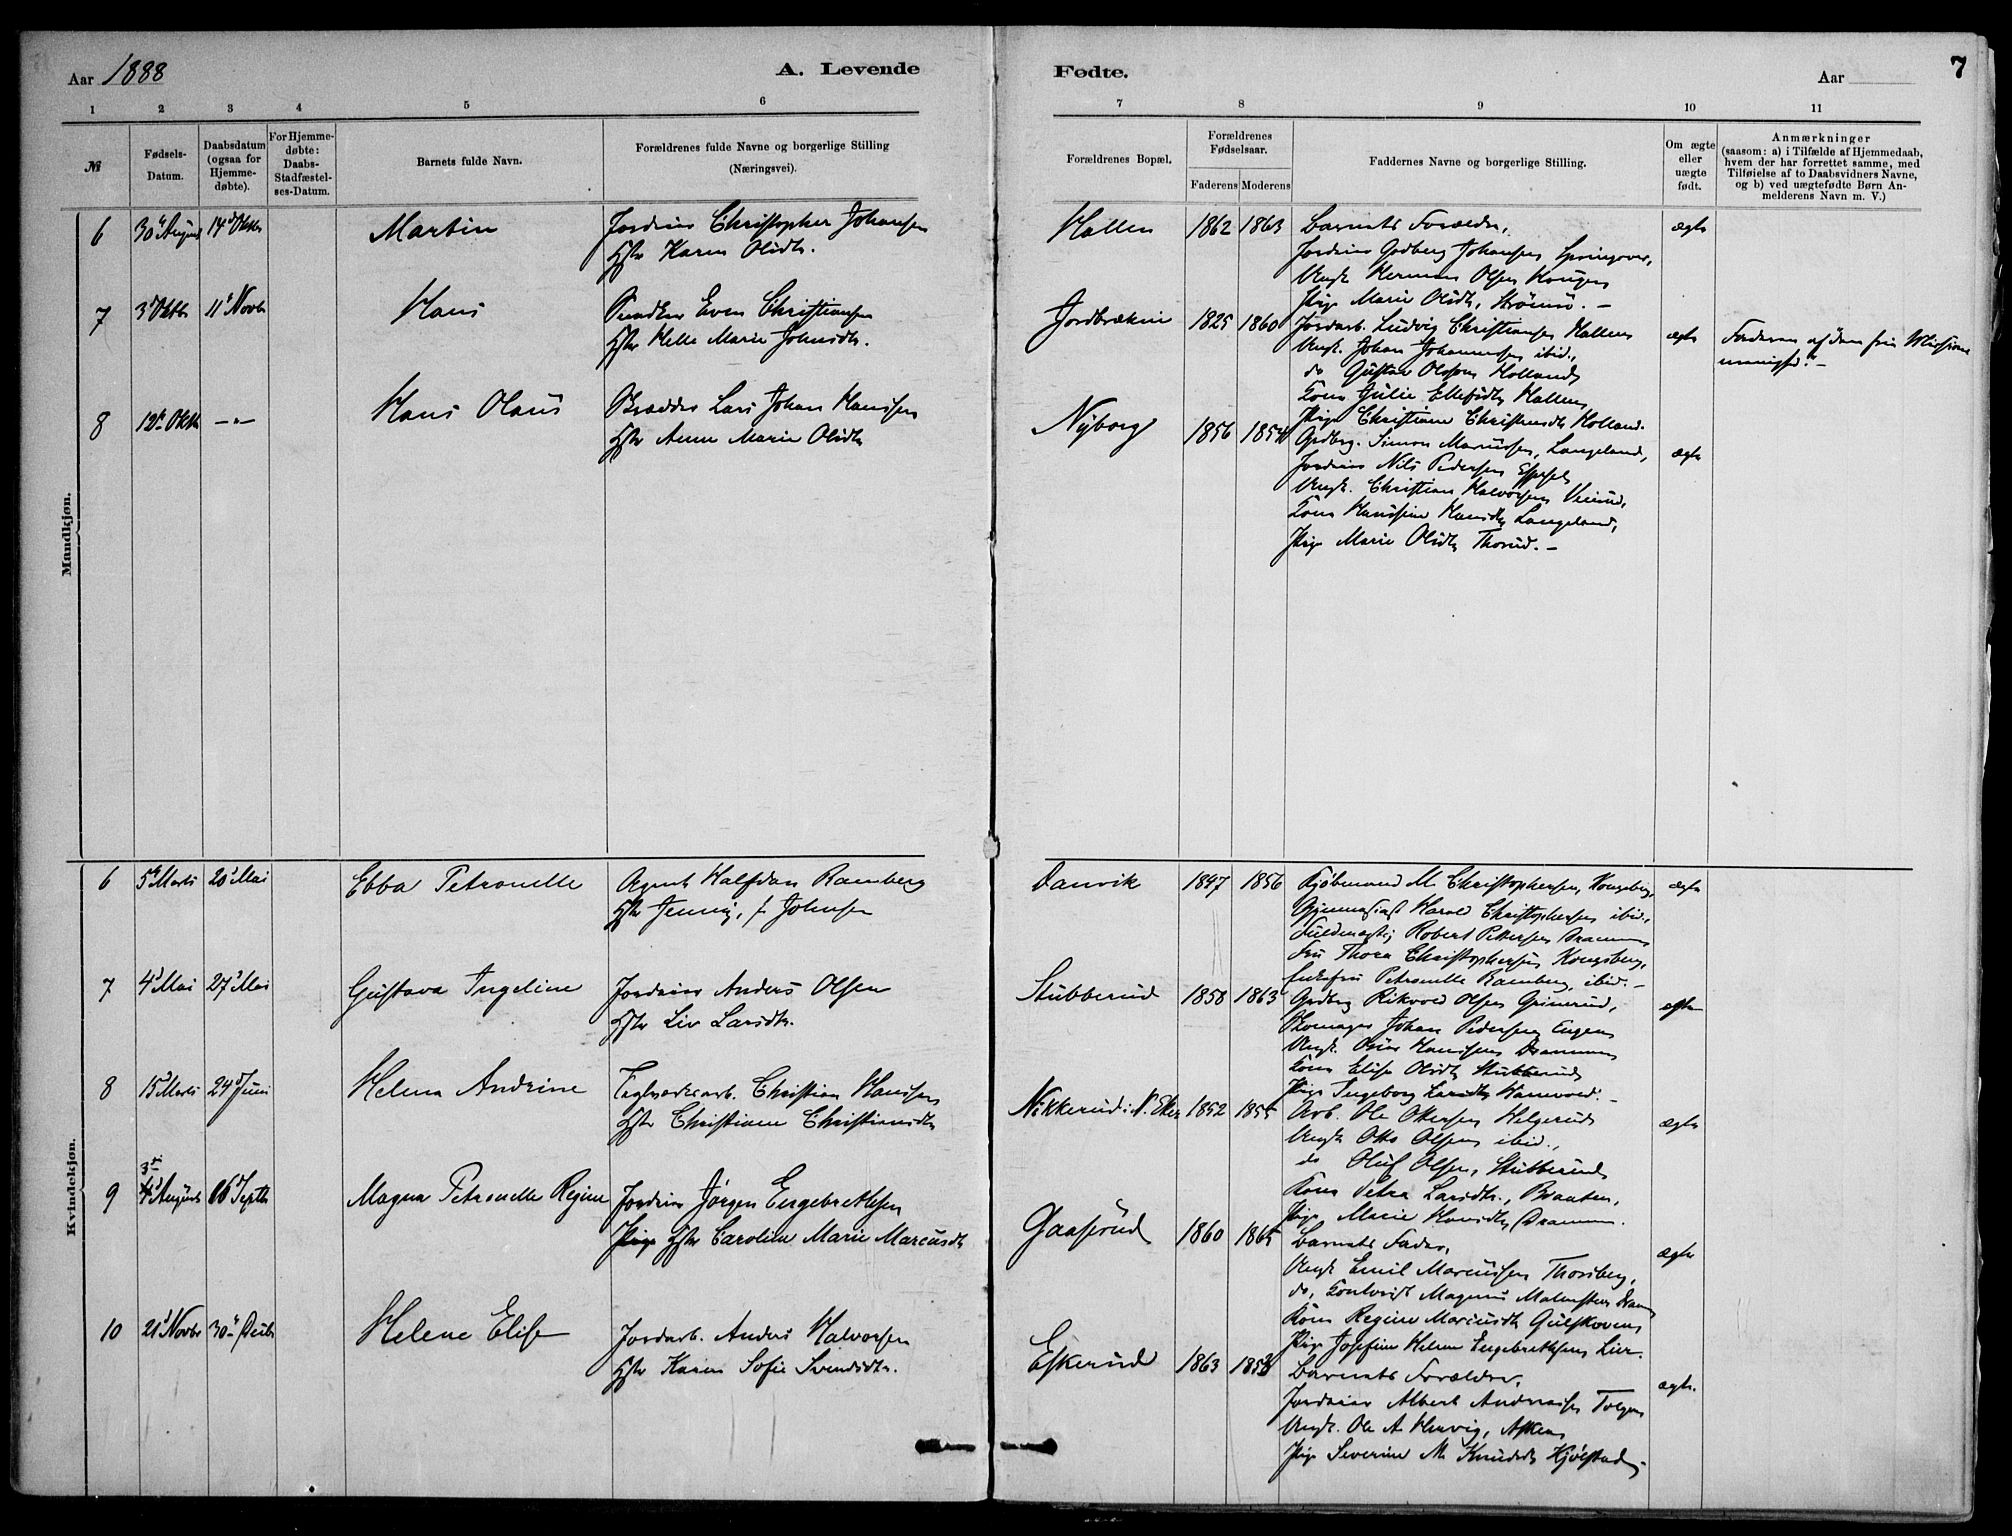 Aar 1888
A. Levende
Fødte.
Aar
7
1 2 3 4 5 6 7 8 9 10 11
№
Fødsels-
Datum.
Daabsdatum
(ogsaa for
Hjemme-
døbte).
For Hjemme-
døbte:
Daabs-
Stadfæstel-
ses-Datum.
Barnets fulde Navn.
Forældrenes fulde Navne og borgerlige Stilling
(Næringsvei).
Forældrenes Bopæl.
Forældrenes
Fødselsaar.
Faderens Moderens
Faddernes Navne og borgerlige Stilling.
Om ægte
eller
uægte
født.
Anmærkninger
(saasom: a) i Tilfælde af Hjemmedaab,
hvem der har forrettet samme, med
Tilføielse af to Daabsvidners Navne,
og b) ved uægtefødte Børn An-
melderens Navn m. V.)
Mandkjøn.
6 30 August 14 Oktbr
Martin
Christopher Johansen
Hstr Karen Olsdtr.
Hallen
1862 1863
Barnets Forældre,
Gudberg Johansen Springover,
Ungk. Herman Olsen
Pige Marie Olsdtr, Strømsø. -
ægte
7 3 Oktbr 11 Novbr
Hans
Even Christiansen
Hstr Helle Marie Johnsdtr.
Jordbrækken
1825 1860
Jordarb. Ludvig Christiansen Hallen
Ungk. Johan Johannesen ibid.,
do Gustav Olsson Holland,
Kone Julie Hallen
Pige Christiane Holland.
ægte
Faderen
8 12 Oktbr -"-
Hans Olaus
Lars Johan Hansen
Hstr Anne Marie Olsdtr
Nyborg
1856 1854
Grdbrg. Simon Mariussen, Langeland,
Nils Pedersen
Ungk. Christian Halvorsen
Kone Hansine Hansdtr Langeland,
Pige Marie Olsdtr Thorud. -
ægte
Kvindekjøn.
6 5 Marts 20 Mai
Ebba Petronelle
Agent Halfdan Ramberg
Hstr Jenny, f. Johnsen
Danvik
1847 1856
Kjøbmand M. Christophersen, Kongsberg,
Gymnasiast Harald Christophersen ibid.,
Fuldmægtig Robert Pettersen Drammen
Fru Thora Christophersen Kongsberg,
Enkefru Petronelle Ramberg, ibid. -
ægte
7 4 Mai 27 Mai
Gustava Ingeline
Anders Olsen
Hstr Liv Larsdtr.
Stubberud
1858 1863
Grdbrg Olsen Grimerud,
Skomager Johan Pedersen Engen
Ungk. Hansen Drammen
Kone Elise Olsdtr Stubberud
Pige Ingeborg Larsdtr
ægte
8 15 Marts 24 Juni
Helena Andrine
Teglværksarb. Christian Hansen
Hstr Christiane Christiansdtr
Nikkerud i N. Eker
1852 1855
Arb. Ole Ottersen Helgerud
Ungk Otto Olsen ibid.,
do Oluf Olsen, Stubberud
Kone Petra Larsdtr., Braaten,
Pige Marie Hansdtr Drammen.
ægte
9 August 16 Septbr
Magna Petronelle Regine
Jørgen Engebrethsen
Hstr Caroline Marie Marcusdtr
Gaaserud
1860 1865
Barnets Fader,
Ungk Emil Marcussen Thorsberg,
do, Kontorist Magnus Dram
Kone Regine Marcusdtr Gulskoven
Pige Josefine Helene Engebrethsen Lier.
ægte
10 21 Novbr 30
Helene Elise
Jordarb. Anders Halvorsen
Hstr Karen Sofie Svendsdtr.
Eskerud
1863 1858
Barnets Forældre,
Albert Andreasen
Ungk. Ole A. Hervig, Asken
Pige Severine M. Knudsdtr Kjølstad,
ægte.